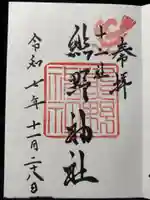 奉拝
十二社
熊野神社
令和七年十一月二八日